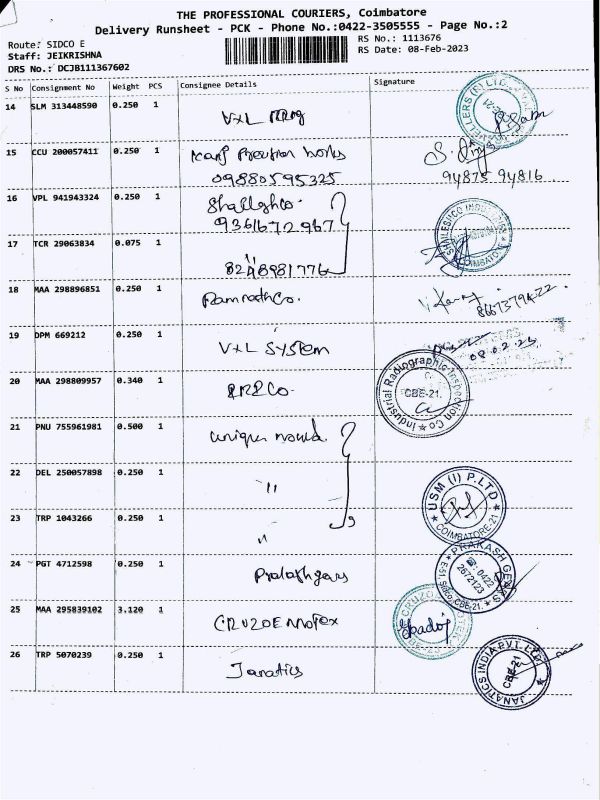 THE PROFESSIONAL COURIERS, Coimbatore
Delivery Runsheet - PCK - Phone No.:0422-3505555 - Page No.:2
Route: SIDCO E
Staff: JEIKRISHNA
DRS No.: DCJB111367602
RS No.: 1113676
RS Date: 08-Feb-2023
S No Consignment No Weight PCS Consignee Details Signature
14 SLM 313448590 0.250 1
15 CCU 200057411 0.250 1
09880595325
S.
94875 94816
16 VPL 941943324 0.250 1
9361672967
SHAILESHCO INDUSTRIES
COIMBATORE
17 TCR 29063834 0.075 1
"
8248981776
18 MAA 298896851 0.250 1
Ramnath Co.
8667379422
19 DPM 669212 0.250 1 VXL SYSTEM
08.02.23
20 MAA 298809957 0.340 1
Industrial Radiographic Inspection Co
CBE-21.
21 PNU 755961981 0.500 1 unique mould
22 DEL 250057898 0.250 1 "
USM (I) P.LTD
COIMBATORE-21
23 TRP 1043266 0.250 1 "
24 PGT 4712598 0.250 1
PRAKASH GEARS
0422
2672123
E-51, Sidco, CBE-21.
25 MAA 295839102 3.120 1
CRUZOE
26 TRP 5070239 0.250 1 Janatics
JANATICS INDIA PVT. LTD
CBE-21